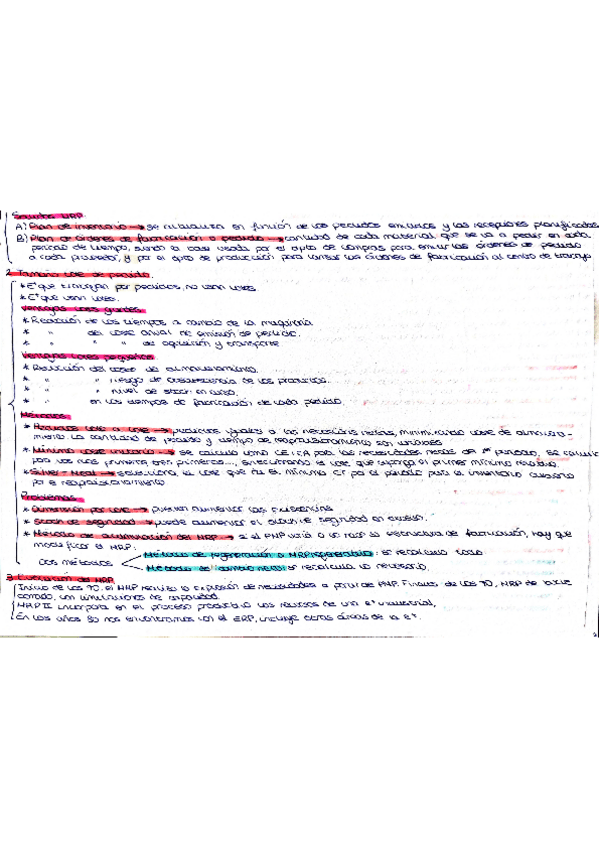 Salidas MRP
A) Plan de inventario → se calculan en función de los pedidos emitidos y las recepciones planificadas
B) Plan de órdenes de fabricación o pedido → cantidad de cada material que se va a pedir en cada
período de tiempo, siendo la base usada por el dpto de compras para emitir las órdenes de pedido
a cada proveedor, y por el dpto de producción para lanzar las órdenes de fabricación al centro de trabajo
2. Tamaño lote de pedido
* Eª que trabajan por pedidos, no usan lotes
* Eª que usan lotes.
Ventajas lotes grandes
* Reducción de los tiempos de cambio de la maquinaria
* " del coste anual de emisión de pedido.
* " " " de adquisición y transporte
Ventajas lotes pequeños
* Reducción del coste de almacenamiento.
* " " riesgo de obsolescencia de los productos.
* " " nivel de stock en curso.
* " en los tiempos de fabricación de cada pedido.
Métodos
* → pedidos iguales a las necesidades netas, minimizando coste de almacena-
miento. La cantidad de pedido y tiempo de reaprovisionamiento son variables
* Mínimo coste unitario → se calcula como CE + CA para las necesidades netas del 1er período, se calcula
para los dos primeros, tres primeros..., seleccionando el lote que suponga el primer mínimo
* Silver-Meal → selecciona el lote que da el mínimo CT para el período para el inventario
por el reaprovisionamiento
Problemas
* Dimensión por lote → pueden aumentar las existencias
* Stock de seguridad → puede aumentar el stock de seguridad en exceso.
* Método de actualización del MRP → si el PMP varía o lo hace la estructura de fabricación, hay que
modificar el MRP.
Dos métodos
Método de regeneración o MRP regenerativo: se recalcula todo
Método de cambio neto: se recalcula lo necesario.
3. Evolución del MRP
Inicio de los 70, el MRP realiza la explosión de necesidades a partir de PMP. Finales de los 70, MRP de bucle
cerrado, con limitaciones de capacidad.
MRP II incorpora en el proceso productivo los recursos de una eª industrial.
En los años 90 nos encontramos con el ERP, incluye otras áreas de la eª.